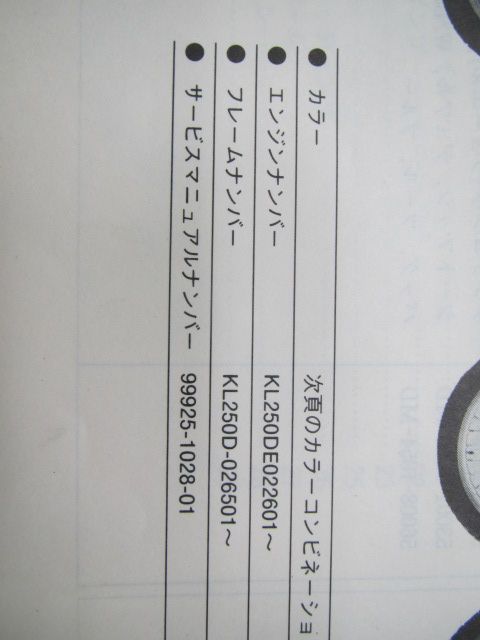 ● カラー 次頁のカラーコンビネーショ
● エンジンナンバー KL250DE022601～
● フレームナンバー KL250D-026501～
● サービスマニュアルナンバー 99925-1028-01